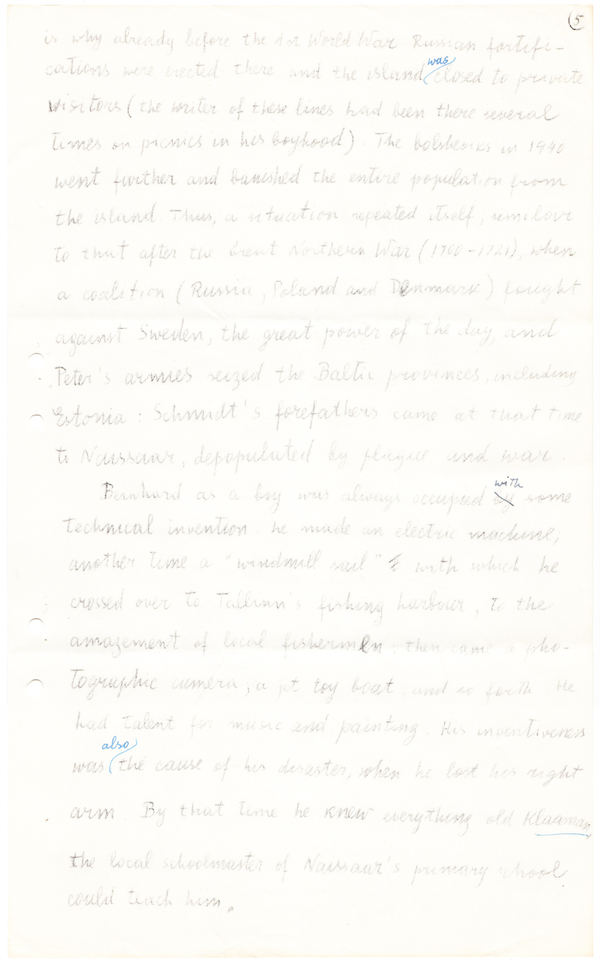 5
is why already before the 1st World War Russian fortifi-
cations were erected there and the island was closed to private
visitors (the writer of these lines had been there several
times on picnics in his boyhood). The bolsheviks in 1940
went further and banished the entire population from
the island. Thus, a situation repeated itself, similar
to that after the Great Northern War (1700-1721), when
a coalition (Russia, Poland and Denmark) fought
against Sweden, the great power of the day, and
Peter's armies seized the Baltic provinces, including
Estonia: Schmidt's forefathers came at that time
to Naissaar, depopulated by plague and war.
Bernhard as a boy was always occupied with some
technical invention. he made an electric machine;
another time a "windmill sail" with which he
crossed over to Tallinn's fishing harbour, to the
amazement of local fishermen; then came a pho-
tographic camera; a jet toy boat, and so forth. He
had talent for music and painting. His inventiveness
was also the cause of his disaster, when he lost his right
arm. By that time he knew everything old Klaaman,
the local schoolmaster of Naissaar's primary school
could teach him.